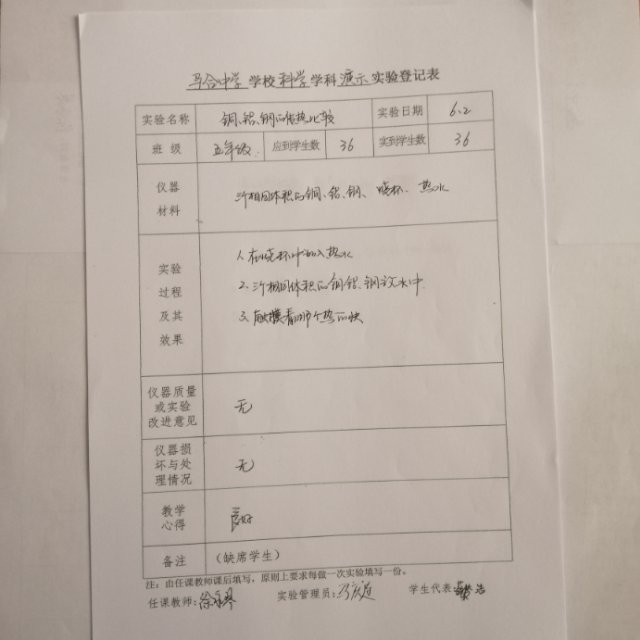 马合中学 学校 科学 学科 演示 实验登记表
实验名称 铜、铝、钢的传热比较 实验日期 6.2
班 级 五年级 应到学生数 36 实到学生数 36
仪器
材料 相同体积的铜、铝、钢、烧杯、热水
实验
过程
及其
效果
1、在烧杯中加入热水
2、相同体积的铜、铝、钢放水中
3、触摸看哪个热的快
仪器质量
或实验
改进意见 无
仪器损
坏与处
理情况 无
教学
心得 良好
备注 (缺席学生)
注:由任课教师课后填写,原则上要求每做一次实验填写一份。
任课教师: 实验管理员: 学生代表: